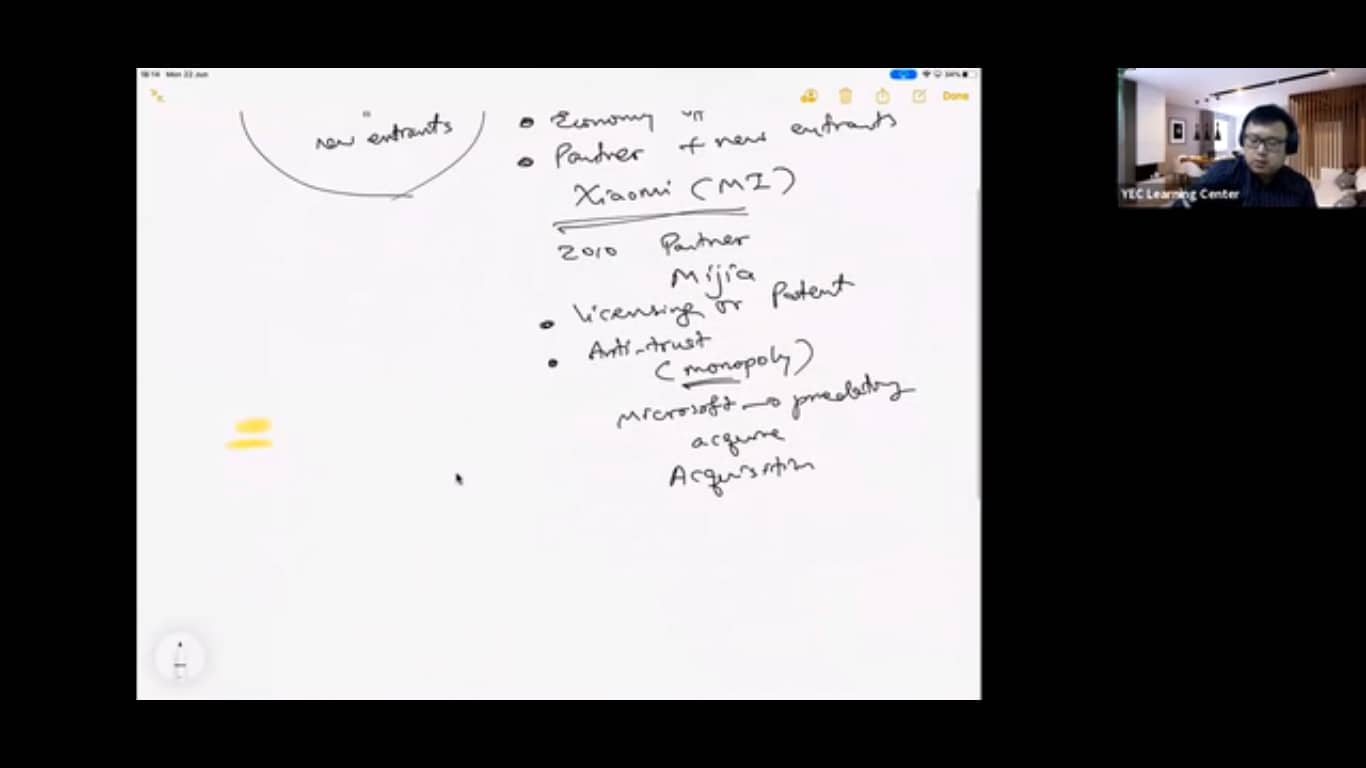 18:14 Mon 22 Jun
34%
Done
new entrants
• Economy
• Partner + new entrants
Xiaomi (MI)
2010 Partner
Mijia
• Licensing or Patent
• Anti-trust
(monopoly)
Microsoft → predatory
acquire
Acquisition
YEC Learning Center